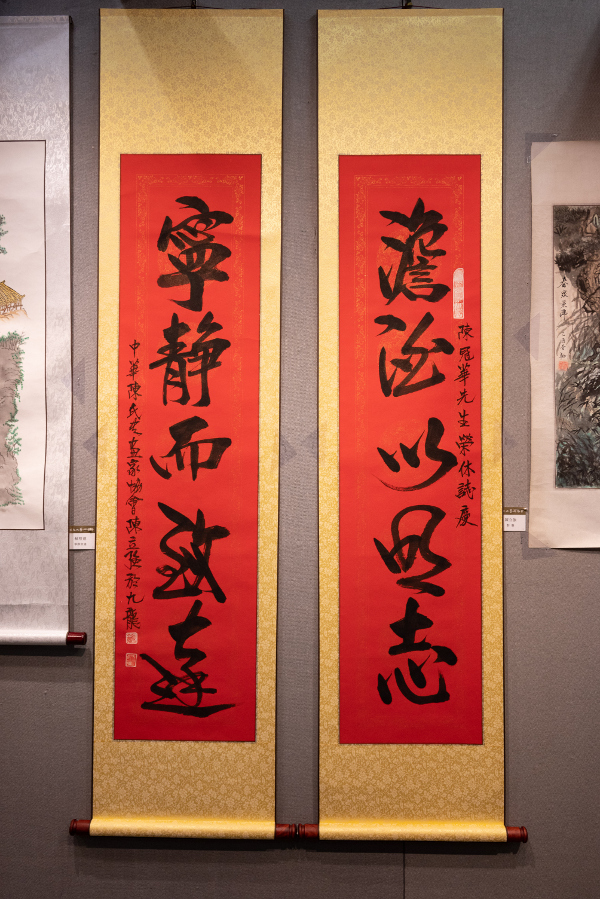 陳冠華先生榮休誌慶
澹泊以明志
寧靜而致遠
中華陳氏書畫家協會陳立於九龍